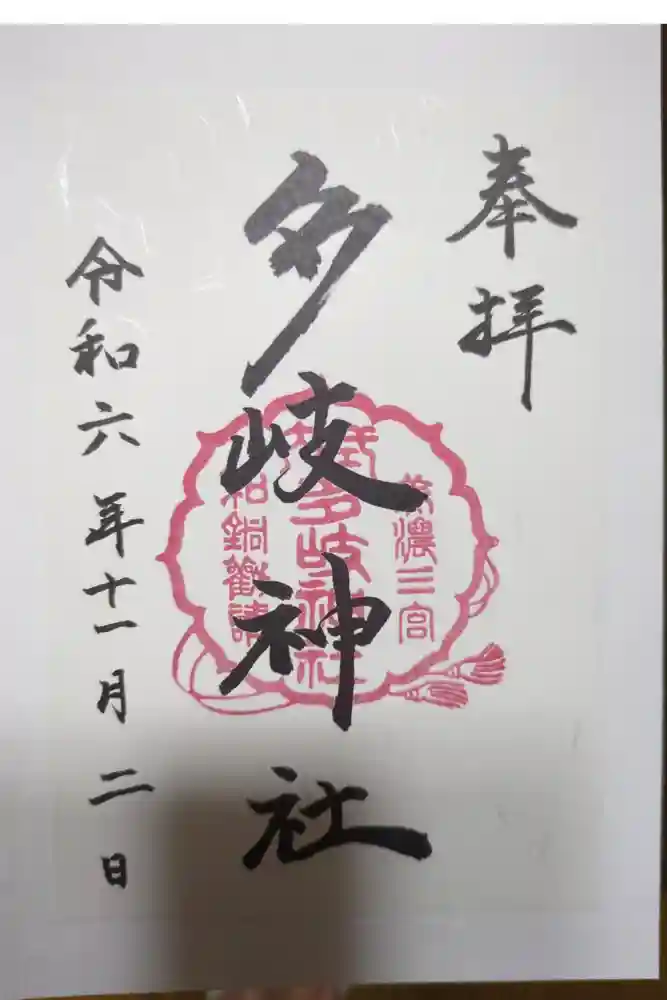 奉拝
多岐神社
美濃三宮
多岐神社
和銅勧請
令和六年十一月二日